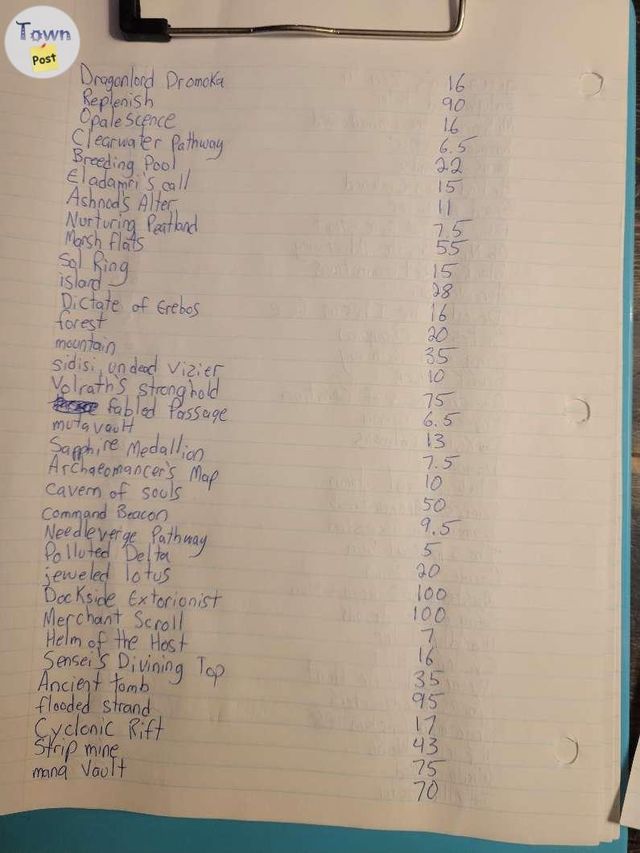 Town
Post
Dragonlord Dromoka 16
Replenish 90
Opalescence 16
Clearwater Pathway 6.5
Breeding Pool 22
Eladamri's call 15
Ashnod's Alter 11
Nurturing Peatland 7.5
Marsh flats 55
Sol Ring 15
island 28
Dictate of Erebos 16
forest 20
mountain 35
sidisi, undead Vizier 10
Volrath's stronghold 75
fabled Passage 6.5
mutavault 13
Sapphire Medallion 7.5
Archaeomancer's Map 10
Cavern of souls 50
Command Beacon 9.5
Needleverge Pathway 5
Polluted Delta 20
jeweled lotus 100
Dockside Extorionist 100
Merchant Scroll 7
Helm of the Host 16
Sensei's Divining Top 35
Ancient tomb 95
flooded strand 17
Cyclonic Rift 43
Strip mine 75
mana Vault 70